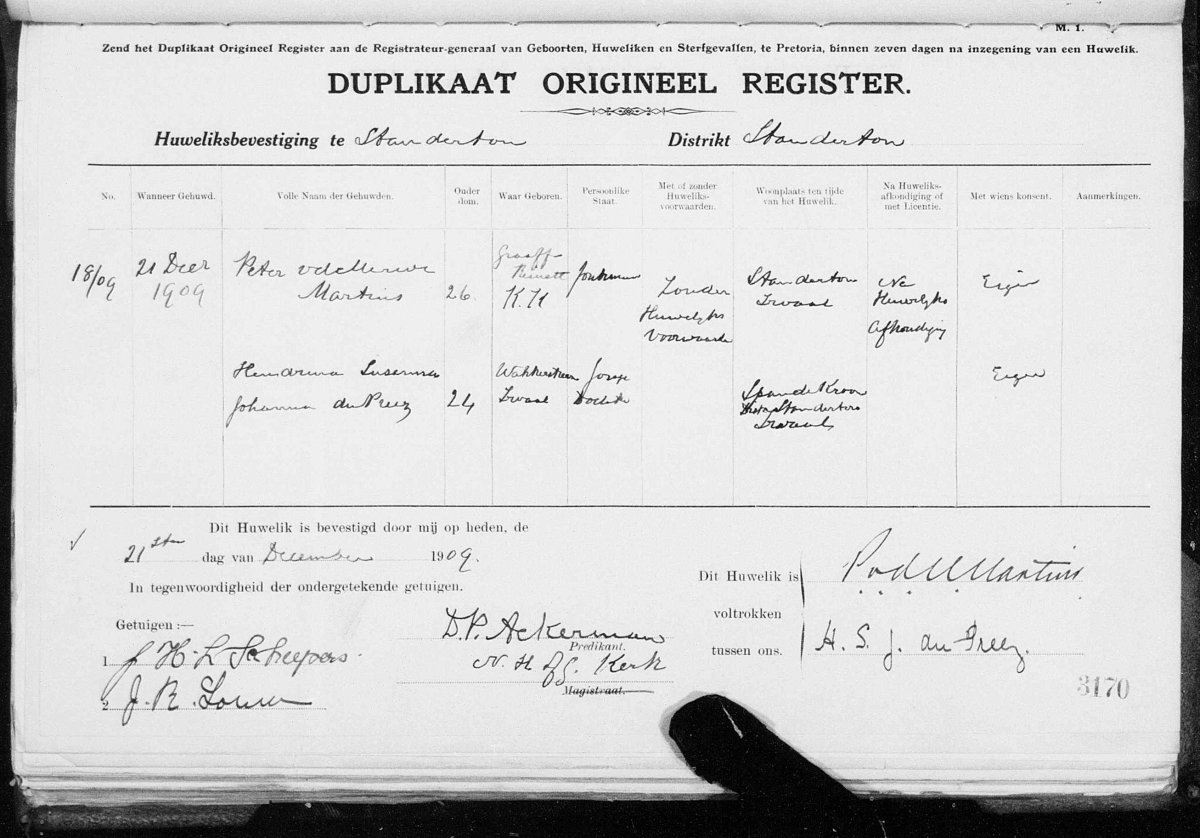 M. 1.
Zend het Duplikaat Origineel Register aan de Registrateur-generaal van Geboorten, Huweliken en Sterfgevallen, te Pretoria, binnen zeven dagen na inzegening van een Huwelik.
DUPLIKAAT ORIGINEEL REGISTER.
Huweliksbevestiging te Standerton Distrikt Standerton
No. Wanneer Gehuwd. Volle Naam der Gehuwden. Ouder dom. Waar Geboren. Persoonlike Staat. Met of zonder Huweliks-voorwaarden. Woonplaats ten tijde van het Huwelik. Na Huweliks-afkondiging of met Licentie. Met wiens konsent. Aanmerkingen.
18/09
21 Decr
1909
Peter vdMerwe
Martins
26.
Graaff-
Reinett
K.K
Jonkman
Zonder
Huwelyks
Voorwaarde
Standerton
Tvaal
Na
Huwelyks
Afkondiging
Eigen
Susanna
Johanna du Preez
24
Wakkerstroom
Tvaal
Jonge
Dochter
Standerton
Eigen
Dit Huwelik is bevestigd door mij op heden, de
21sten dag van December 1909.
In tegenwoordigheid der ondergetekende getuigen.
Getuigen :—
1 J H. L Scheepers.
2 J. R. Louw
D. P. Ackerman
Predikant.
N. H of G. Kerk
Magistraat.
Dit Huwelik is
voltrokken
tussen ons.
PvdMMartins
H. S. J. du Preez.
3170